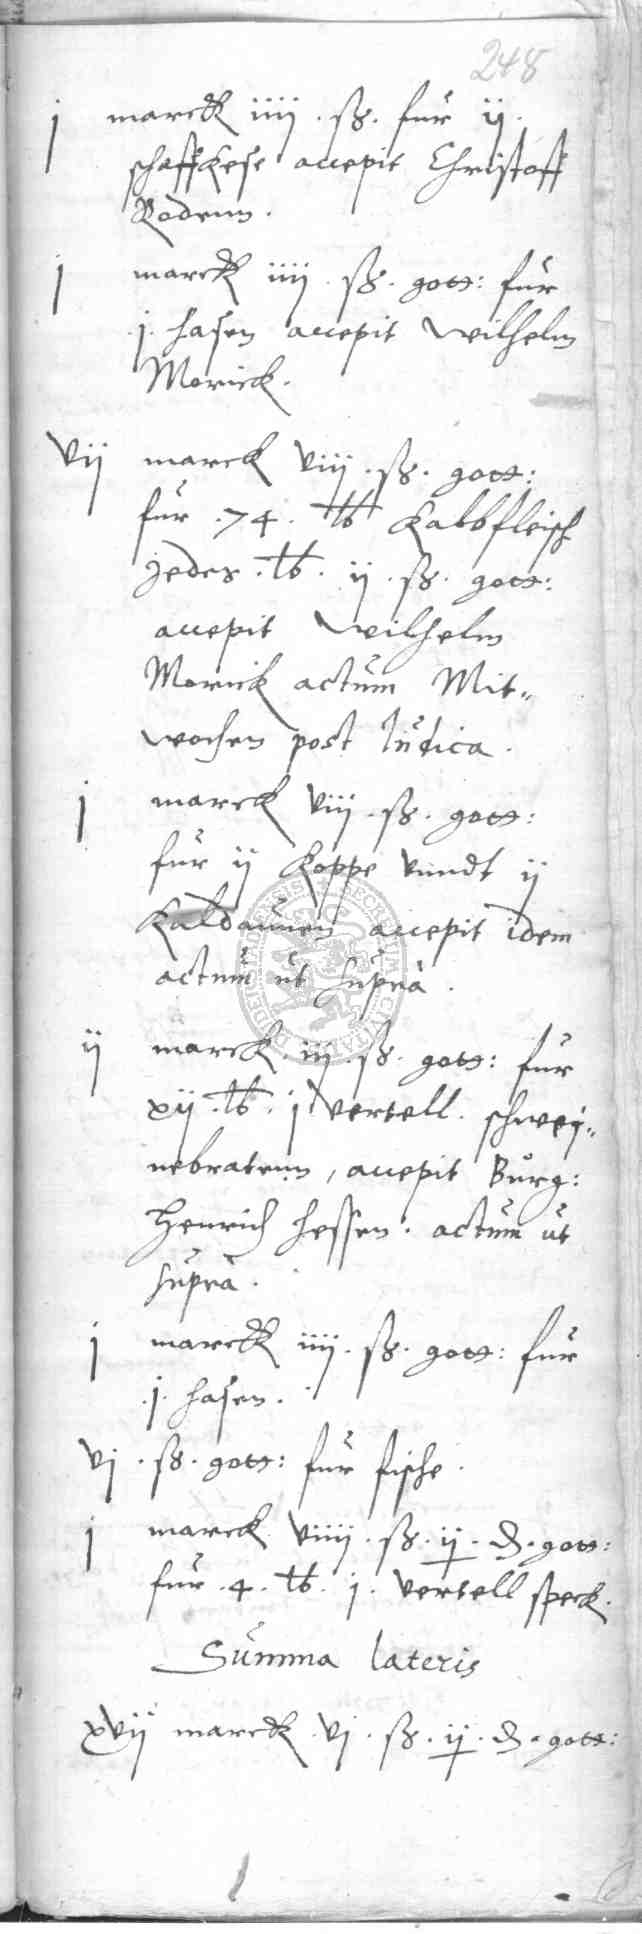 248
j marck iiij . ß . fur ij .
schaffkese accepit Christoff
Rodenn .
j marck iiij . ß . gott: fur
.j. hasen accepit Wilhelm
Morick .
vij marck viij . ß . gott:
fur . 74 . lb Kalbfleisch
jedes . lb . ij . ß . gott:
accepit Wilhelm
Morick actum Mit-
wochen post Judica .
j marck viij . ß . gott:
fur ij Koppe vnndt ij
Kaldaunen accepit idem
actum ut supra .
ij marck . iij . ß . gott: fur
xij . lb . j vertell . schwey-
nebratenn , accepit Burg:
Henrich hessen . actum ut
supra .
j marck iiij . ß . gott: fur
.j. hasen .
vj . ß . gott: fur fische .
j marck viiij . ß . ij . ₰ . gott:
fur . 4 . lb . j . vertell speck .
Summa lateris
xvij marck . vj . ß . ij . ₰ . gott: